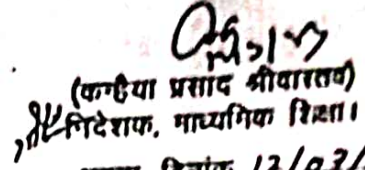 (कन्हैया प्रसाद श्रीवास्तव)
निदेशक, माध्यमिक शिक्षा।
दिनांक 12/03/